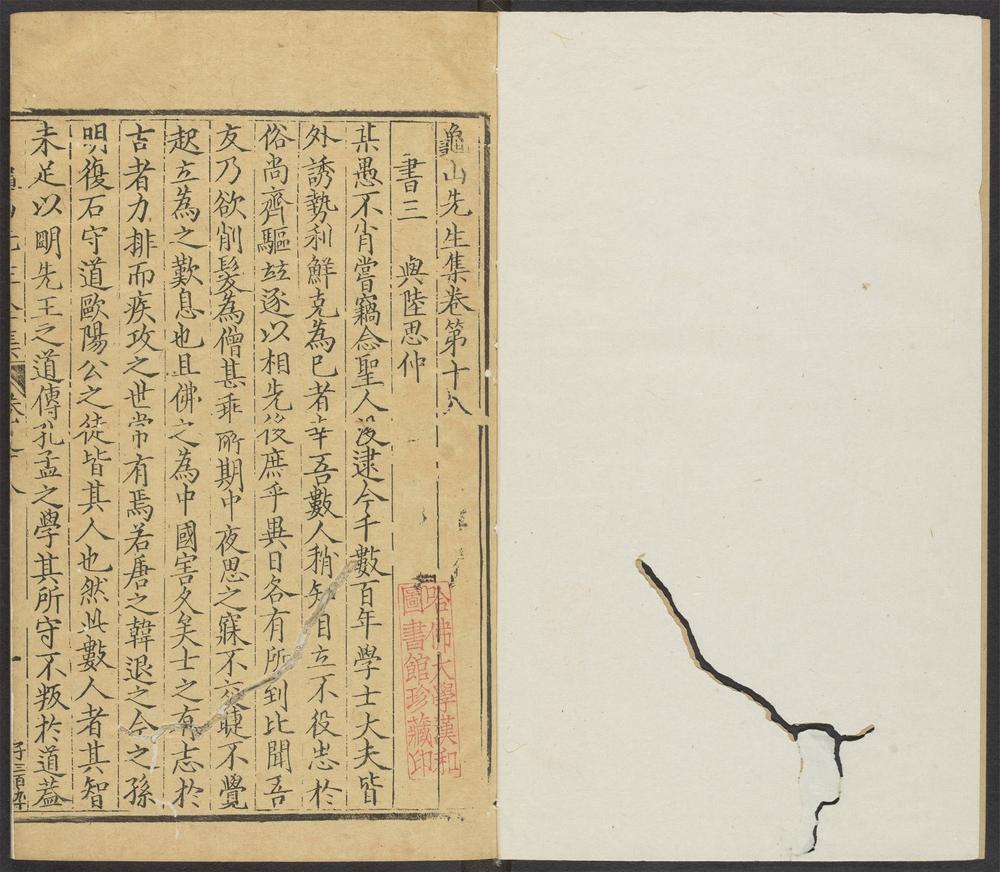 龜山先生集卷第十八
書三　與陸思仲
某愚不肖嘗竊念聖人沒逮今千數百年學士大夫皆
外誘勢利鮮克為已者幸吾數人稍知自立不役志於
俗尚齊驅並逐以相先後庶乎異日各有所到比聞吾
友乃欲削髮為僧甚乖所期中夜思之寐不交睫不覺
起立為之歎息也且佛之為中國害久矣士之有志於
古者力排而疾攻之世常有焉若唐之韓退之今之孫
明復石守道歐陽公之徒皆其人也然此數人者其智
未足以明先王之道傳孔孟之學其所守不叛於道蓋
哈佛大學漢和
圖書館珍藏印